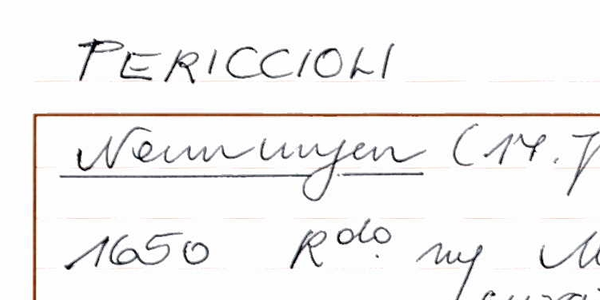 PERICCIOLI
Nennungen (17. J
1650 R.do